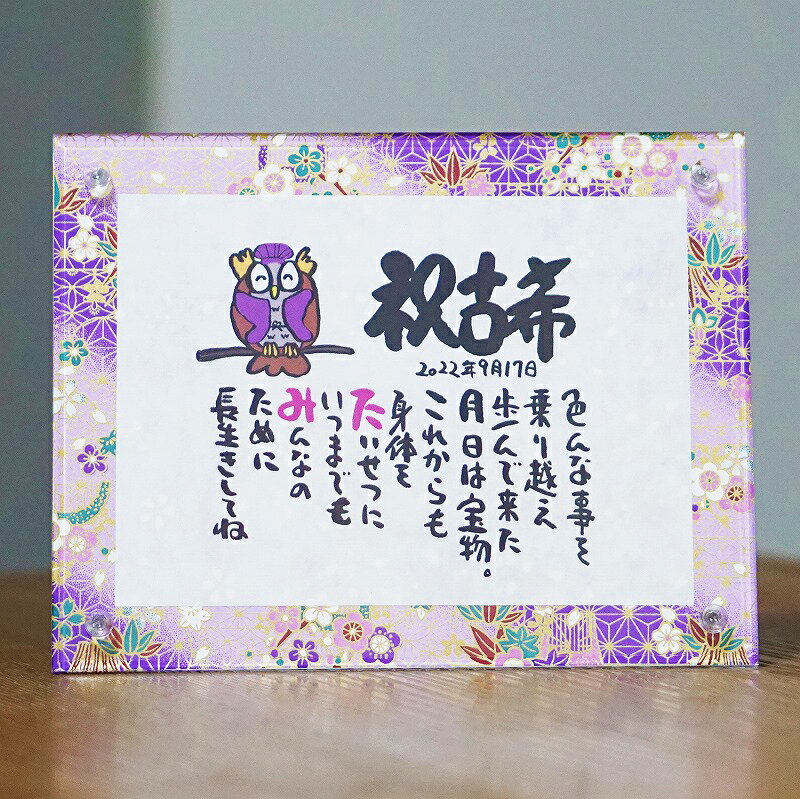 祝古希
2022年9月17日
色んな事を
乗り越え
歩んで来た
月日は宝物。
これからも
身体を
たいせつに
いつまでも
みんなの
ために
長生きしてね